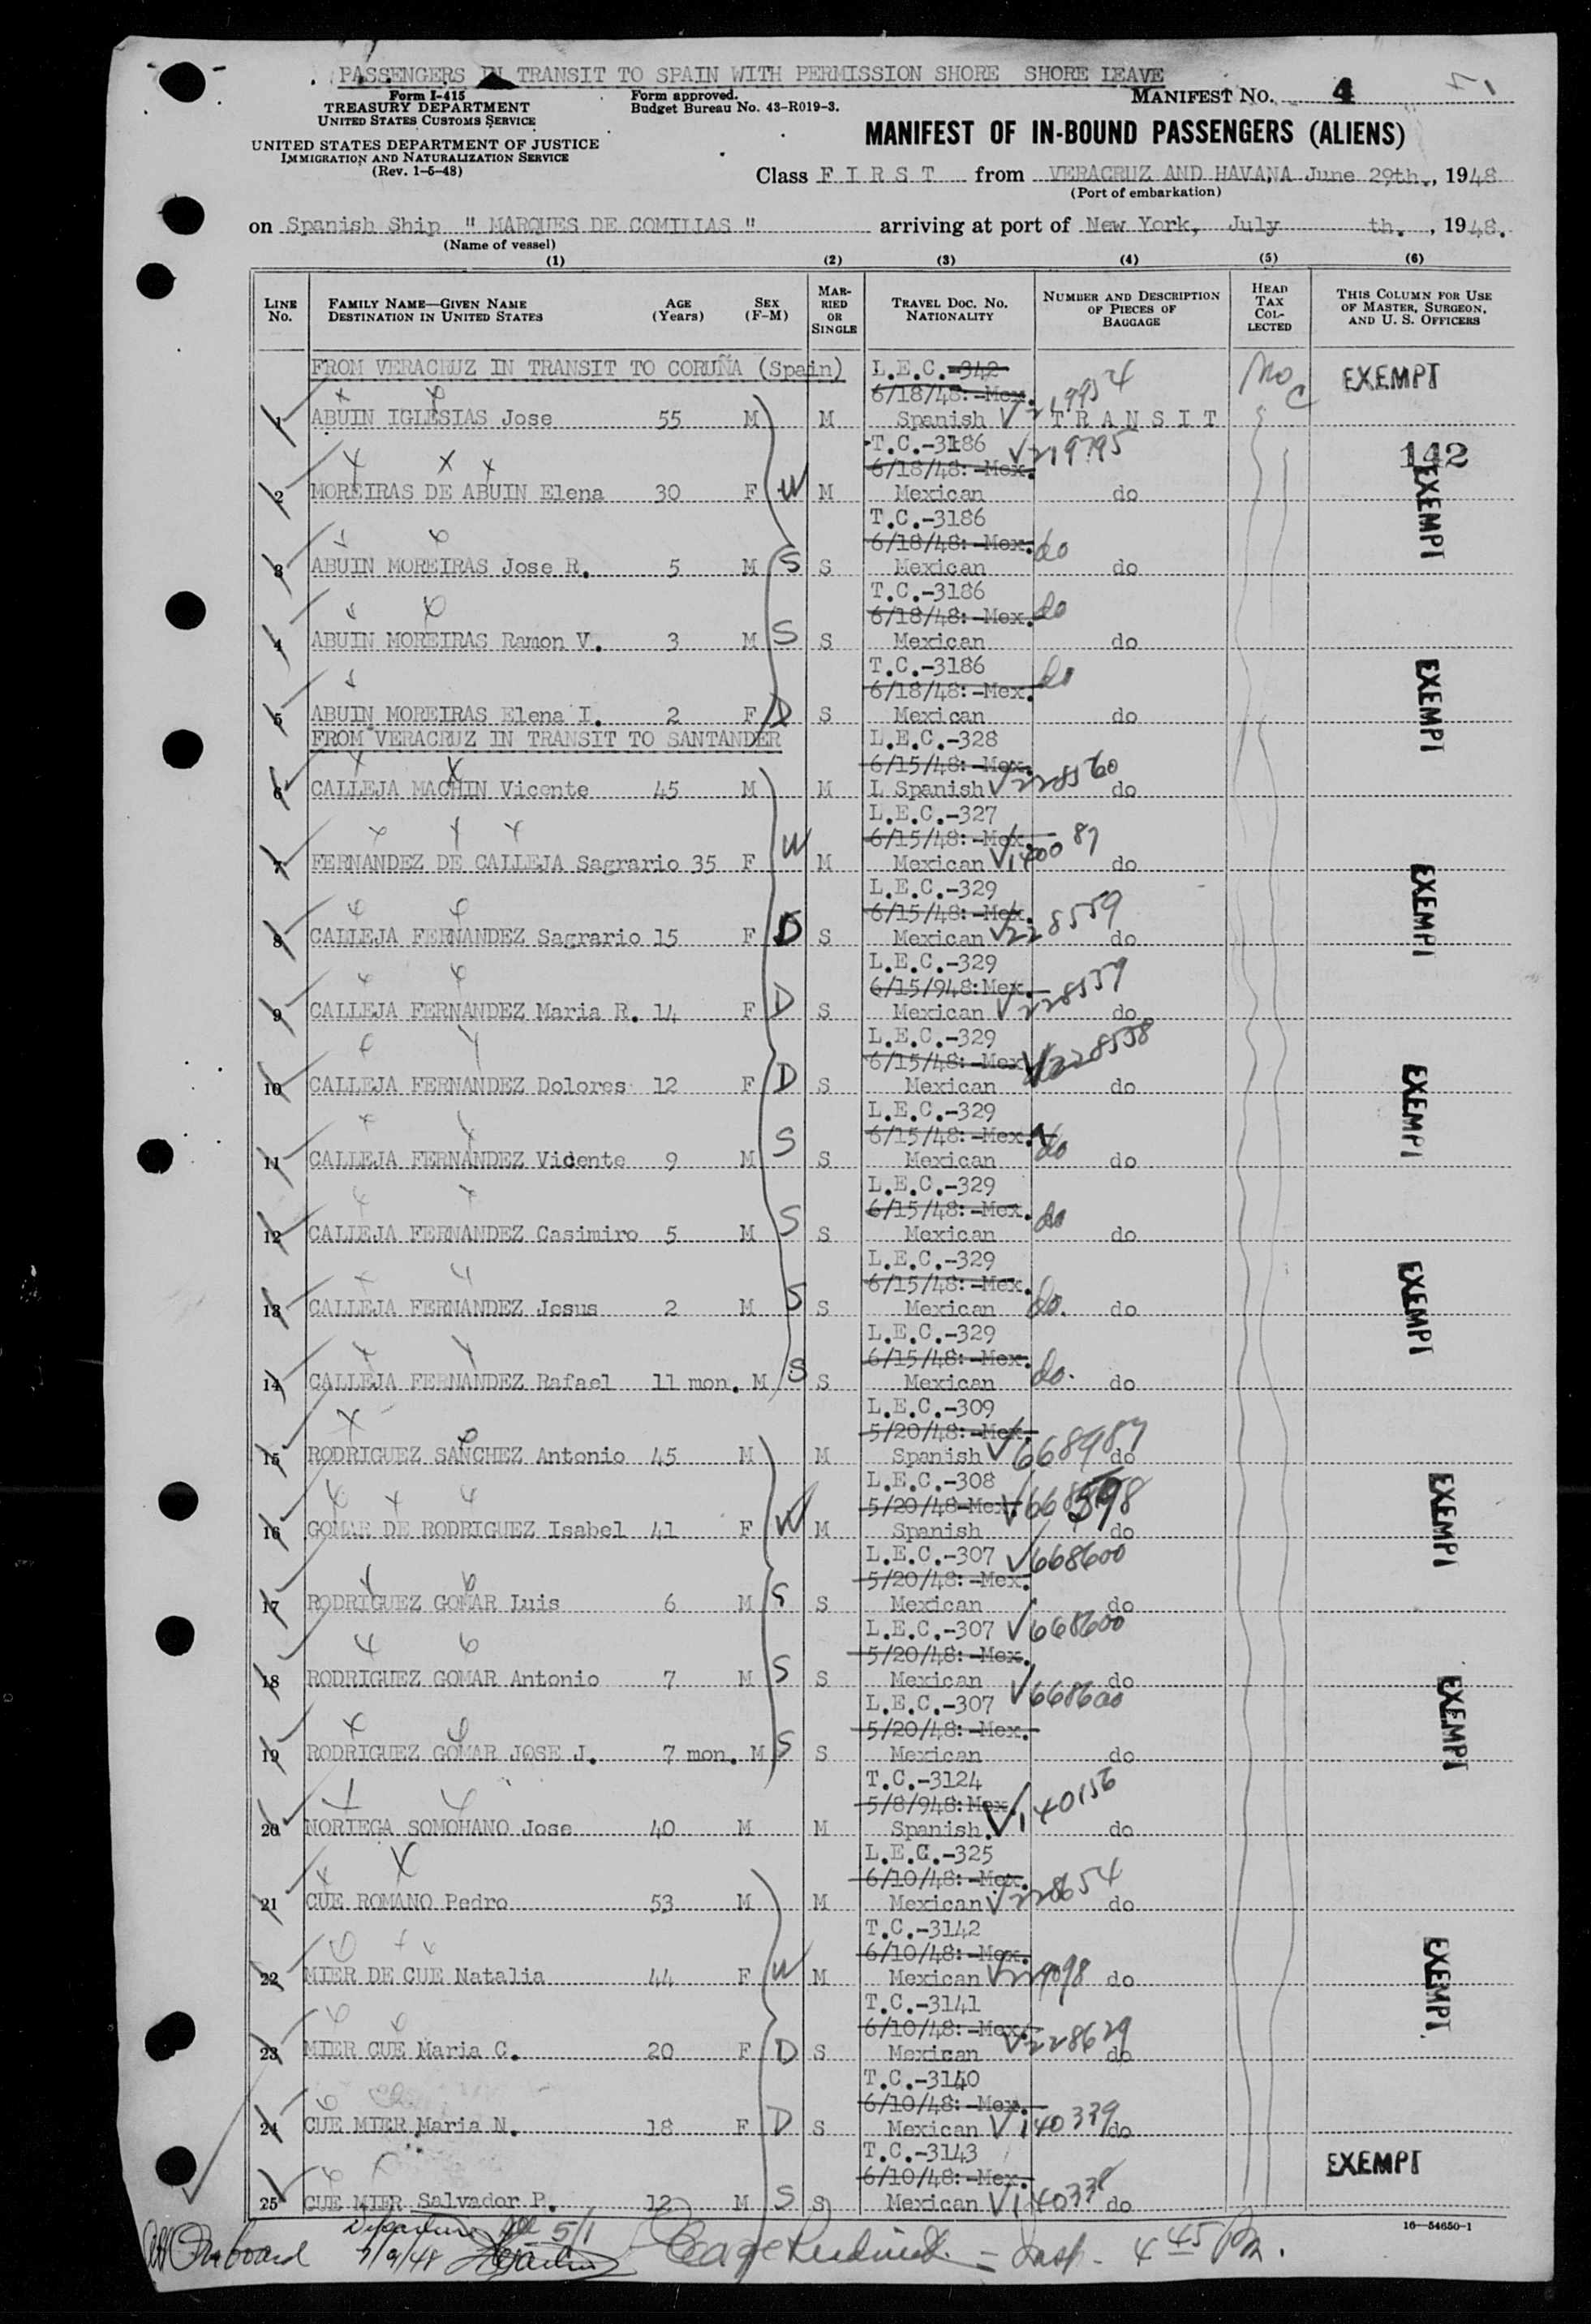 PASSENGERS IN TRANSIT TO SPAIN WITH PERMISSION SHORE SHORE LEAVE
Form I-415
TREASURY DEPARTMENT
UNITED STATES CUSTOMS SERVICE
Form approved.
Budget Bureau No. 43-R019-3.
MANIFEST NO. 4
UNITED STATES DEPARTMENT OF JUSTICE
IMMIGRATION AND NATURALIZATION SERVICE
(Rev. 1-5-48)
MANIFEST OF IN-BOUND PASSENGERS (ALIENS)
Class F I R S T from VERACRUZ AND HAVANA June 29th., 1948
(Port of embarkation)
on Spanish Ship " MARQUES DE COMILLAS " arriving at port of New York, July th. , 1948.
(Name of vessel)
(1) (2) (3) (4) (5) (6)
LINE No. FAMILY NAME—GIVEN NAME DESTINATION IN UNITED STATES AGE (Years) SEX (F-M) MARRIED OR SINGLE TRAVEL DOC. NO. NATIONALITY NUMBER AND DESCRIPTION OF PIECES OF BAGGAGE HEAD TAX COLLECTED THIS COLUMN FOR USE OF MASTER, SURGEON, AND U. S. OFFICERS
FROM VERACRUZ IN TRANSIT TO CORUÑA (Spain) L.E.C.-342 EXEMPT
6/18/48:-Mex.
1 ABUIN IGLESIAS Jose 55 M M Spanish T R A N S I T
T.C.-3186 V219795 142
6/18/48:-Mex.
2 MOREIRAS DE ABUIN Elena 30 F W M Mexican do EXEMPT
T.C.-3186
6/18/48:-Mex. do
3 ABUIN MOREIRAS Jose R. 5 M S S Mexican do
T.C.-3186
6/18/48:-Mex. do
4 ABUIN MOREIRAS Ramon V. 3 M S S Mexican do
T.C.-3186 do
6/18/48:-Mex.
5 ABUIN MOREIRAS Elena I. 2 F D S Mexican do EXEMPT
FROM VERACRUZ IN TRANSIT TO SANTANDER L.E.C.-328
6/15/48:-Mex.
6 CALLEJA MACHIN Vicente 45 M M L Spanish V228560 do
L.E.C.-327
6/15/48:-Mex.
7 FERNANDEZ DE CALLEJA Sagrario 35 F W M Mexican V140087 do
L.E.C.-329
6/15/48:-Mex.
8 CALLEJA FERNANDEZ Sagrario 15 F D S Mexican V228559 do EXEMPT
L.E.C.-329
6/15/948:Mex.
9 CALLEJA FERNANDEZ Maria R. 14 F D S Mexican V228559 do
L.E.C.-329
6/15/48:-Mex. V228558
10 CALLEJA FERNANDEZ Dolores 12 F D S Mexican do EXEMPT
L.E.C.-329
6/15/48:-Mex. do
11 CALLEJA FERNANDEZ Vidente 9 M S S Mexican do
L.E.C.-329
6/15/48:-Mex. do
12 CALLEJA FERNANDEZ Casimiro 5 M S S Mexican do
L.E.C.-329
6/15/48:-Mex.
13 CALLEJA FERNANDEZ Jesus 2 M S S Mexican do. do EXEMPT
L.E.C.-329
6/15/48:-Mex.
14 CALLEJA FERNANDEZ Rafael 11 mon. M S S Mexican do. do
L.E.C.-309
5/20/48:-Mex.
15 RODRIGUEZ SANCHEZ Antonio 45 M M Spanish do
L.E.C.-308
5/20/48-Mex. V668598
16 GOMAR DE RODRIGUEZ Isabel 41 F W M Spanish do EXEMPT
L.E.C.-307 V668600
5/20/48:-Mex.
17 RODRIGUEZ GOMAR Luis 6 M S S Mexican do
L.E.C.-307 V668600
5/20/48:-Mex.
18 RODRIGUEZ GOMAR Antonio 7 M S S Mexican do
L.E.C.-307 V668600
5/20/48:-Mex.
19 RODRIGUEZ GOMAR JOSE J. 7 mon. M S S Mexican do EXEMPT
T.C.-3124
5/8/948:Mex.
20 NORIEGA SOMOHANO Jose 40 M M Spanish. V140156 do
L.E.C.-325
6/10/48:-Mex.
21 CUE ROMANO Pedro 53 M M Mexican V228654 do
T.C.-3142
6/10/48:-Mex.
22 MIER DE CUE Natalia 44 F W M Mexican do EXEMPT
T.C.-3141
6/10/48:-Mex.
23 MIER CUE Maria C. 20 F D S Mexican V228629 do
T.C.-3140
6/10/48:-Mex.
24 CUE MIER Maria N. 18 F D S Mexican V140339 do
T.C.-3143 EXEMPT
6/10/48:-Mex.
25 CUE MIER Salvador P. 12 M S S Mexican V140338 do
16—54650-1
All Onboard Departure 5/1
7/9/48 Insp. 4 45 Pm.